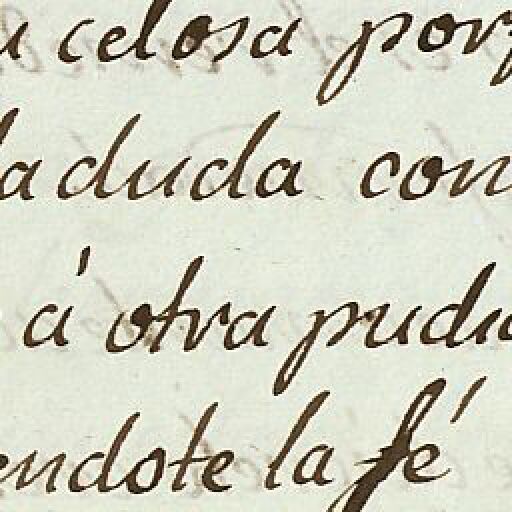 u celosa porf
la duda con
á otra pudie
endote la fé